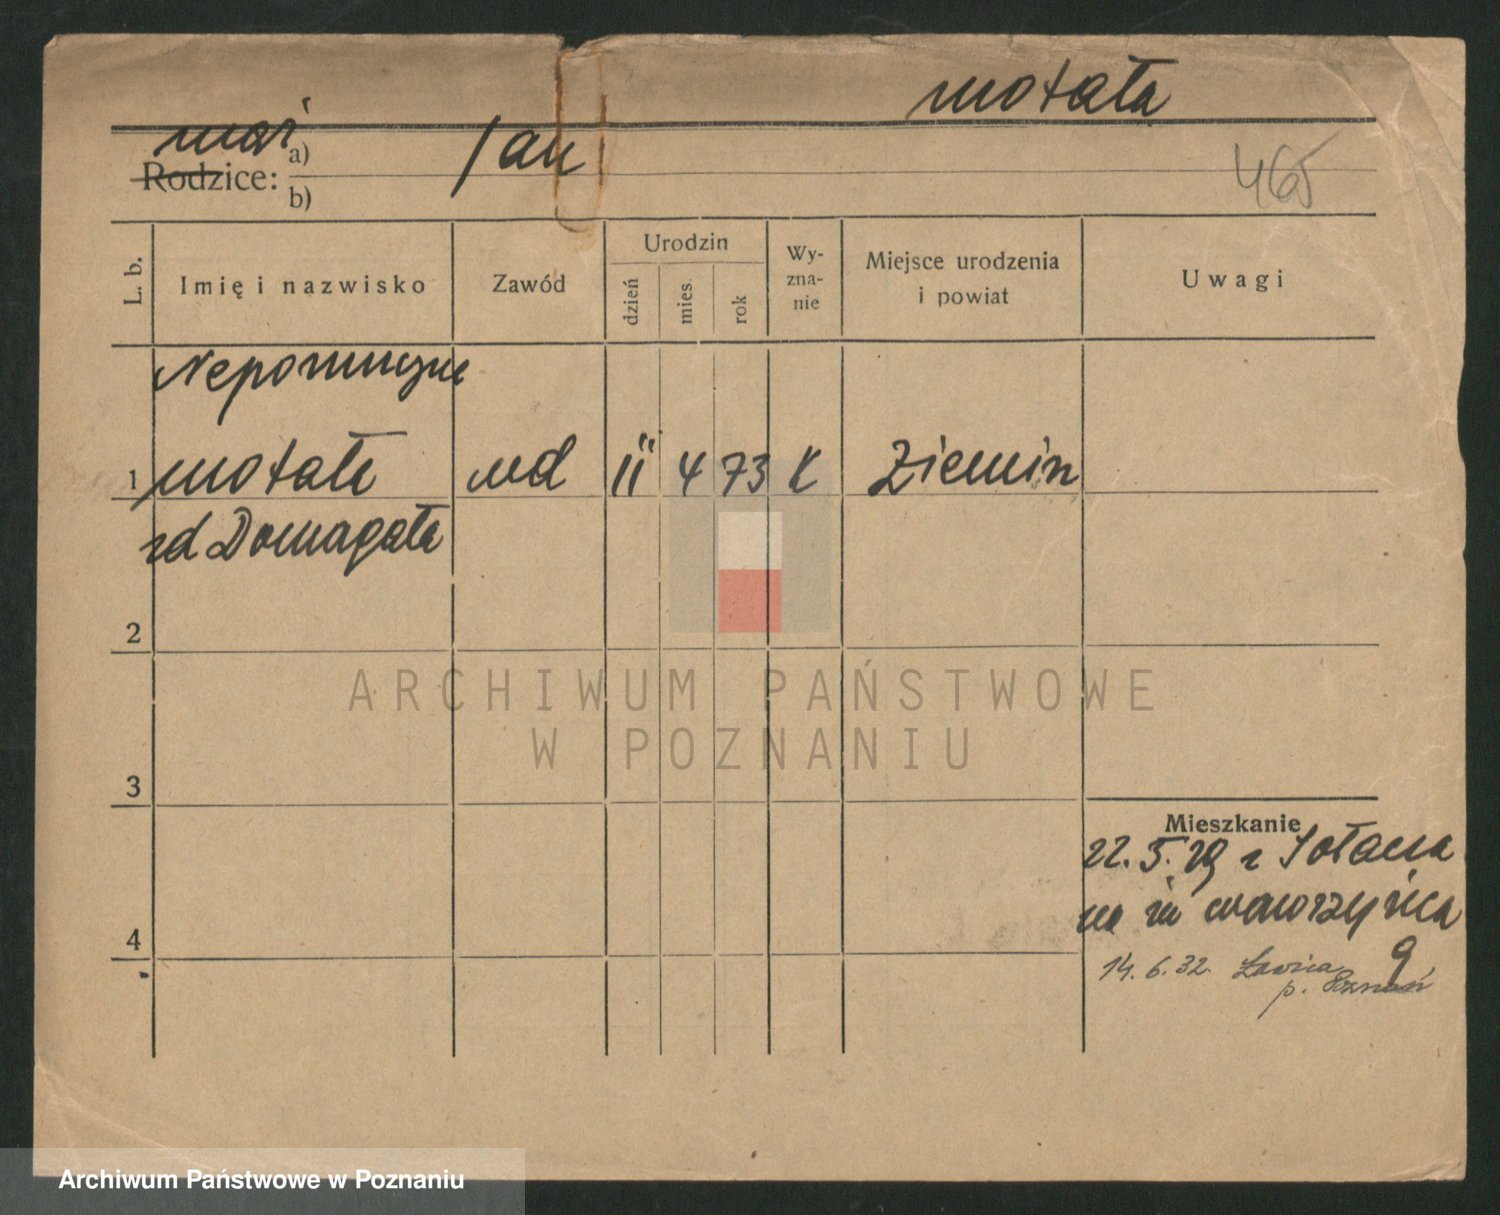 Motała
mąż
Rodzice: a) Jan
b)
465
L. b. Imię i nazwisko Zawód Urodzin dzień mies. rok Wyzna-nie Miejsce urodzenia i powiat Uwagi
Nepomucyna
1 Motała wd 11 4 73 K Ziemin
zd Domagała
2
3
4
Mieszkanie
22.5.29 z Sołacza
na św Wawrzyńca
9
14.6.32. Ławica
p. Poznań
ARCHIWUM PAŃSTWOWE
W POZNANIU
Archiwum Państwowe w Poznaniu